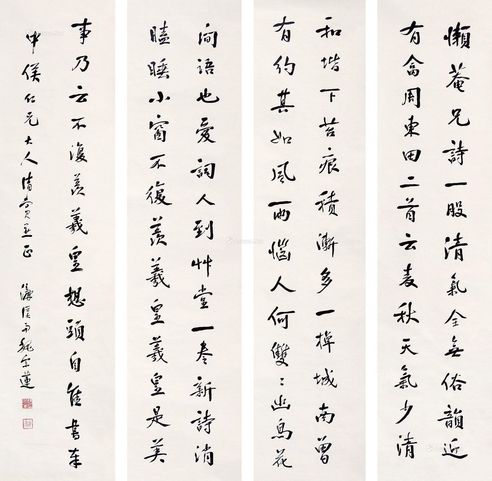 懒菴兄詩一股清氣全無俗韻近
有畣周東田二首云麦秋天氣少清
和堦下苔痕積漸多一掉城南曾
有約其如風雨惱人何雙〻幽鳥花
间語也愛詞人到艸堂一卷新詩消
瞌睡小窗不復羨羲皇羲皇是美
事乃云不復羨羲皇想頭自隹書奉
中侯仁兄大人清賞並正